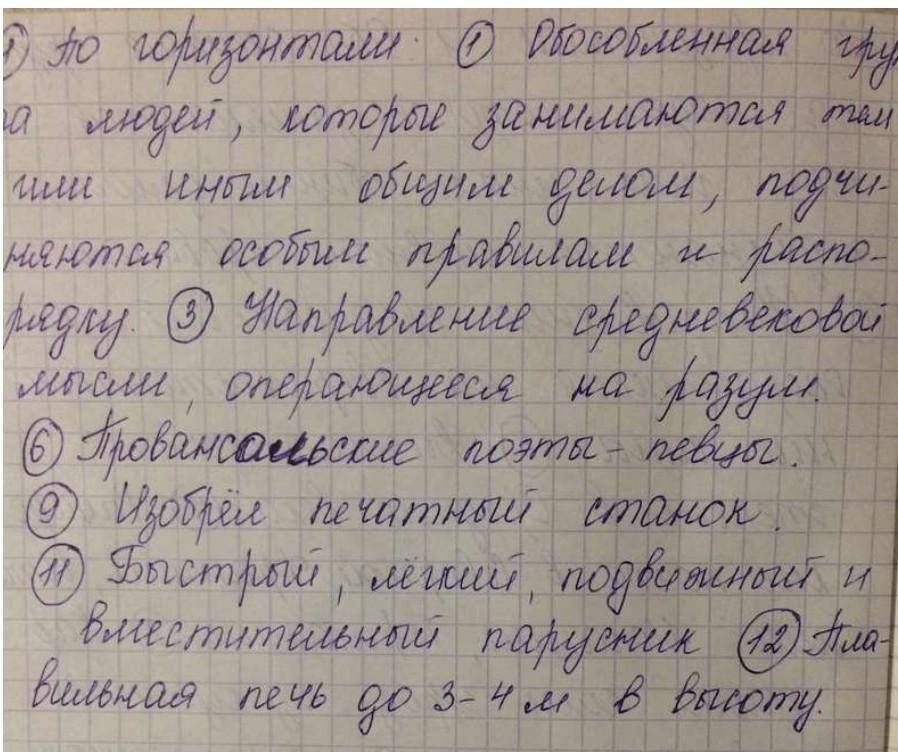 1) по горизонтали: ① Обособленная груп
па людей, которые занимаются тем
или иным общим делом, подчи-
няются особым правилам и распо-
рядку. ③ Направление средневековой
мысли, операющееся на разум.
⑥ Провансальские поэты-певцы.
⑨ Изобрёл печатный станок.
⑪ Быстрый, лёгкий, подвижный и
вместительный парусник ⑫ Пла-
вильная печь до 3-4 м в высоту.